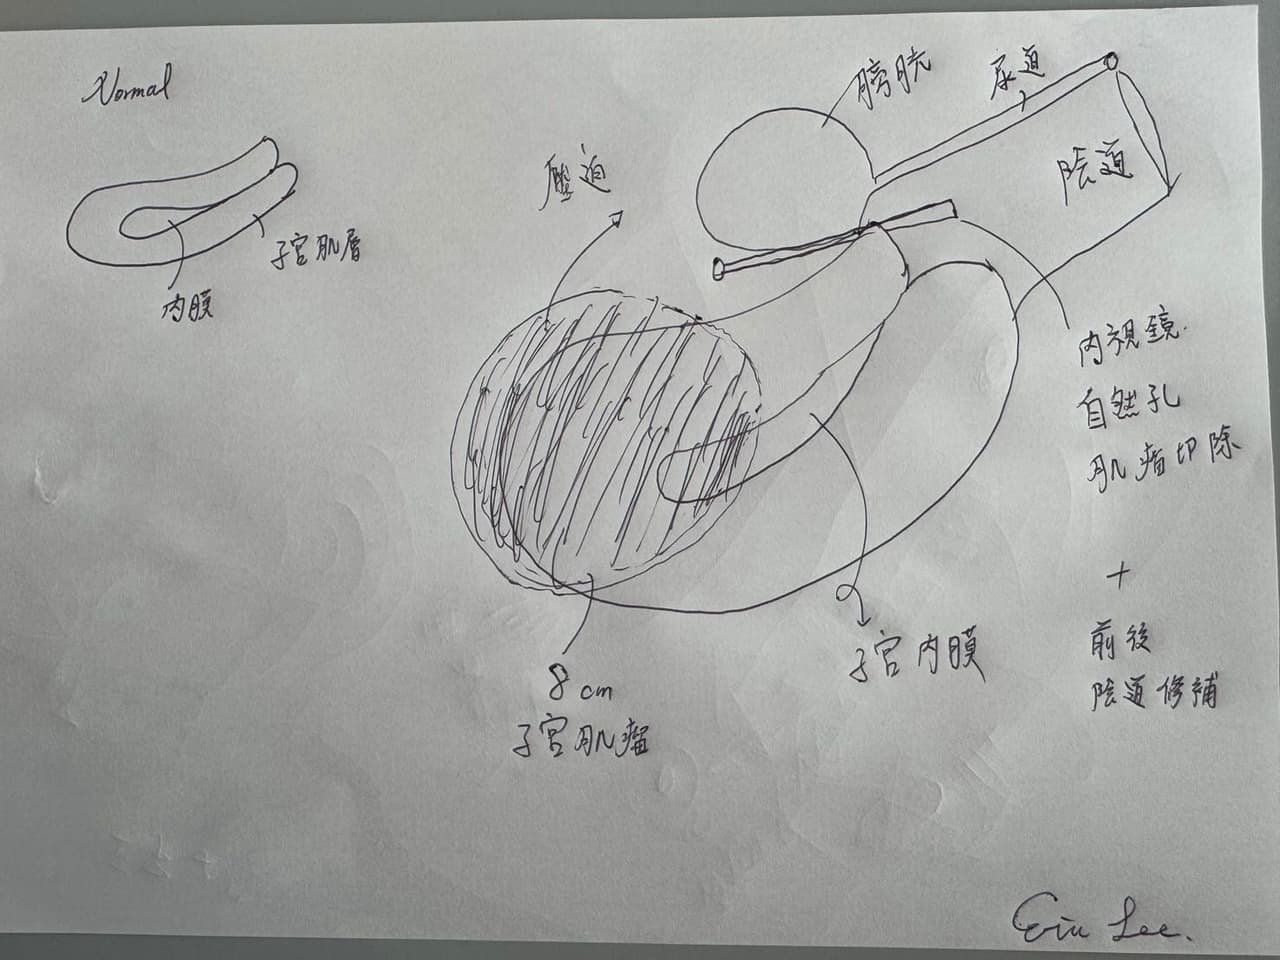 Normal
子宮肌層
內膜
壓迫
膀胱
尿道
陰道
內視鏡
自然孔
肌瘤切除
+
前後
陰道修補
子宮內膜
8 cm
子宮肌瘤
Erin Lee.